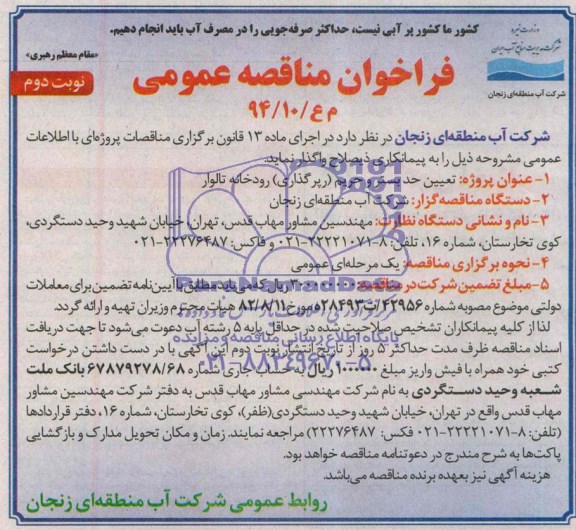 کشور ما کشور پر آبی نیست، حداکثر صرفه‌جویی را در مصرف آب باید انجام دهیم.
«مقام معظم رهبری»
وزارت نیرو
شرکت مدیریت منابع آب ایران
شرکت آب منطقه‌ای زنجان
فراخوان مناقصه عمومی
نوبت دوم
م ع/۹۴/۱۰
شرکت آب منطقه‌ای زنجان در نظر دارد در اجرای ماده ۱۳ قانون برگزاری مناقصات پروژه‌ای با اطلاعات
عمومی مشروحه ذیل را به پیمانکاری ذیصلاح واگذار نماید.
۱- عنوان پروژه: تعیین حد بستر و حریم (رپرگذاری) رودخانه تالوار
۲- دستگاه مناقصه‌گزار: شرکت آب منطقه‌ای زنجان
۳- نام و نشانی دستگاه نظارت: مهندسین مشاور مهاب قدس، تهران، خیابان شهید وحید دستگردی،
کوی تخارستان، شماره ۱۶، تلفن: ۸-۲۲۲۲۱۰۷۱-۰۲۱ و فاکس: ۲۲۲۷۶۴۸۷-۰۲۱
۴- نحوه برگزاری مناقصه: یک مرحله‌ای عمومی
۵- مبلغ تضمین شرکت در مناقصه: ریال که می‌باید مطابق با آیین‌نامه تضمین برای معاملات
دولتی موضوع مصوبه شماره ۴۲۹۵۶/ت۲۸۴۹۳ه مورخ ۸۲/۸/۱۱ هیأت محترم وزیران تهیه و ارائه گردد.
لذا از کلیه پیمانکاران تشخیص صلاحیت شده در حداقل پایه ۵ رشته آب دعوت می‌شود تا جهت دریافت
اسناد مناقصه ظرف مدت حداکثر ۵ روز از تاریخ انتشار نوبت دوم این آگهی با در دست داشتن درخواست
کتبی خود همراه با فیش واریز مبلغ ریال به حساب جاری شماره ۶۷۸۷۹۲۷۸/۶۸ بانک ملت
شعبه وحید دستگردی به نام شرکت مهندسی مشاور مهاب قدس به دفتر شرکت مهندسین مشاور
مهاب قدس واقع در تهران، خیابان شهید وحید دستگردی(ظفر)، کوی تخارستان، شماره ۱۶، دفتر قراردادها
(تلفن: ۸-۲۲۲۲۱۰۷۱-۰۲۱ فکس: ۲۲۲۷۶۴۸۷) مراجعه نمایند. زمان و مکان تحویل مدارک و بازگشایی
پاکت‌ها به شرح مندرج در دعوتنامه مناقصه خواهد بود.
هزینه آگهی نیز بعهده برنده مناقصه می‌باشد.
روابط عمومی شرکت آب منطقه‌ای زنجان
پایگاه اطلاع رسانی مناقصه و مزایده
۰۲۱-۸۸۳۴۹۶۷۰-۵